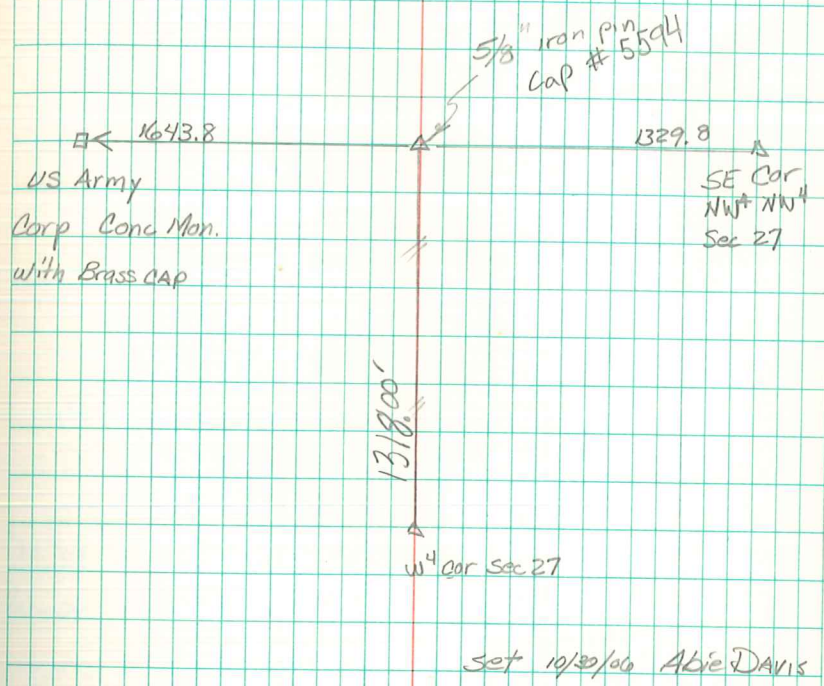 5/8" iron pin
Cap # 5594
1643.8
1329.8
US Army
Corp Conc Mon.
with Brass CAP
SE Cor
NW⁴ NW⁴
Sec 27
1318.00'
W⁴ cor Sec 27
Set 10/30/06 Abie DAVIS